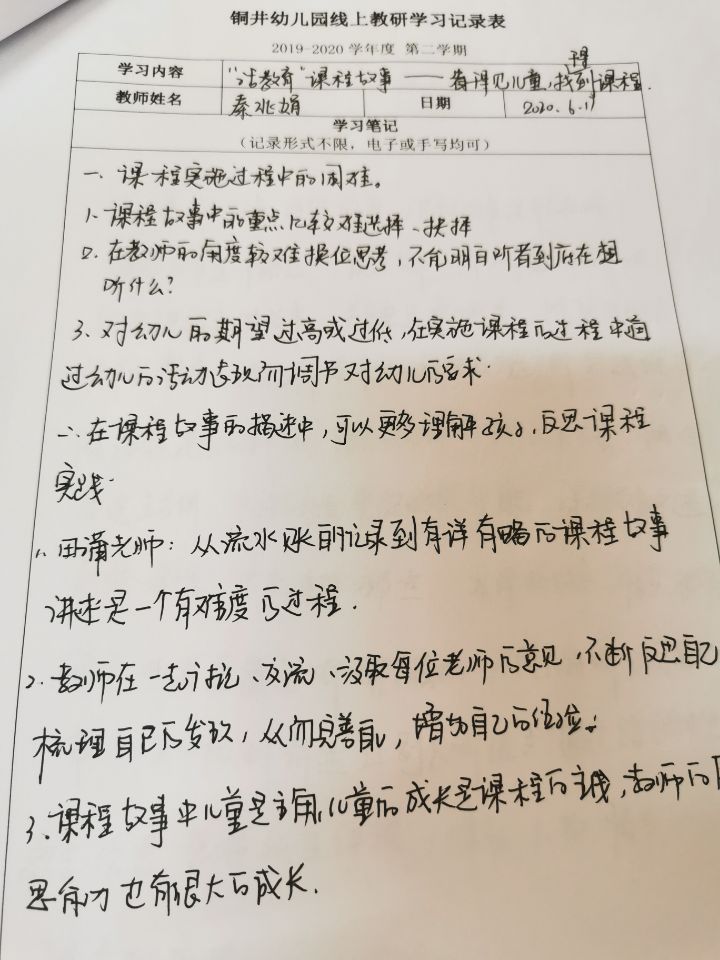 铜井幼儿园线上教研学习记录表
2019-2020 学年度 第二学期
学习内容 “活教育”课程故事——看得见儿童,找到课程.
教师姓名 秦兆娟 日期 2020.6.19
学习笔记
（记录形式不限，电子或手写均可）
一、课程实施过程中的困难。
1、课程故事中的重点比较难选择、抉择
2、在教师的角度较难换位思考，不能明白听者到底在想
听什么?
3、对幼儿的期望过高或过低，在实施课程的过程中通
过幼儿的活动表现而调节对幼儿的要求.
二、在课程故事的描述中，可以更多理解孩子、反思课程
实践.
1、田蒲老师：从流水账的记录到有详有略的课程故事
讲述是一个有难度的过程.
2、教师在一起讨论、交流、汲取每位老师的意见，不断反思自己
梳理自己的发现，从而完善自己，增加自己的经验.
3、课程故事中儿童是主角,儿童的成长是课程的主线，教师的
思能力也有很大的成长.